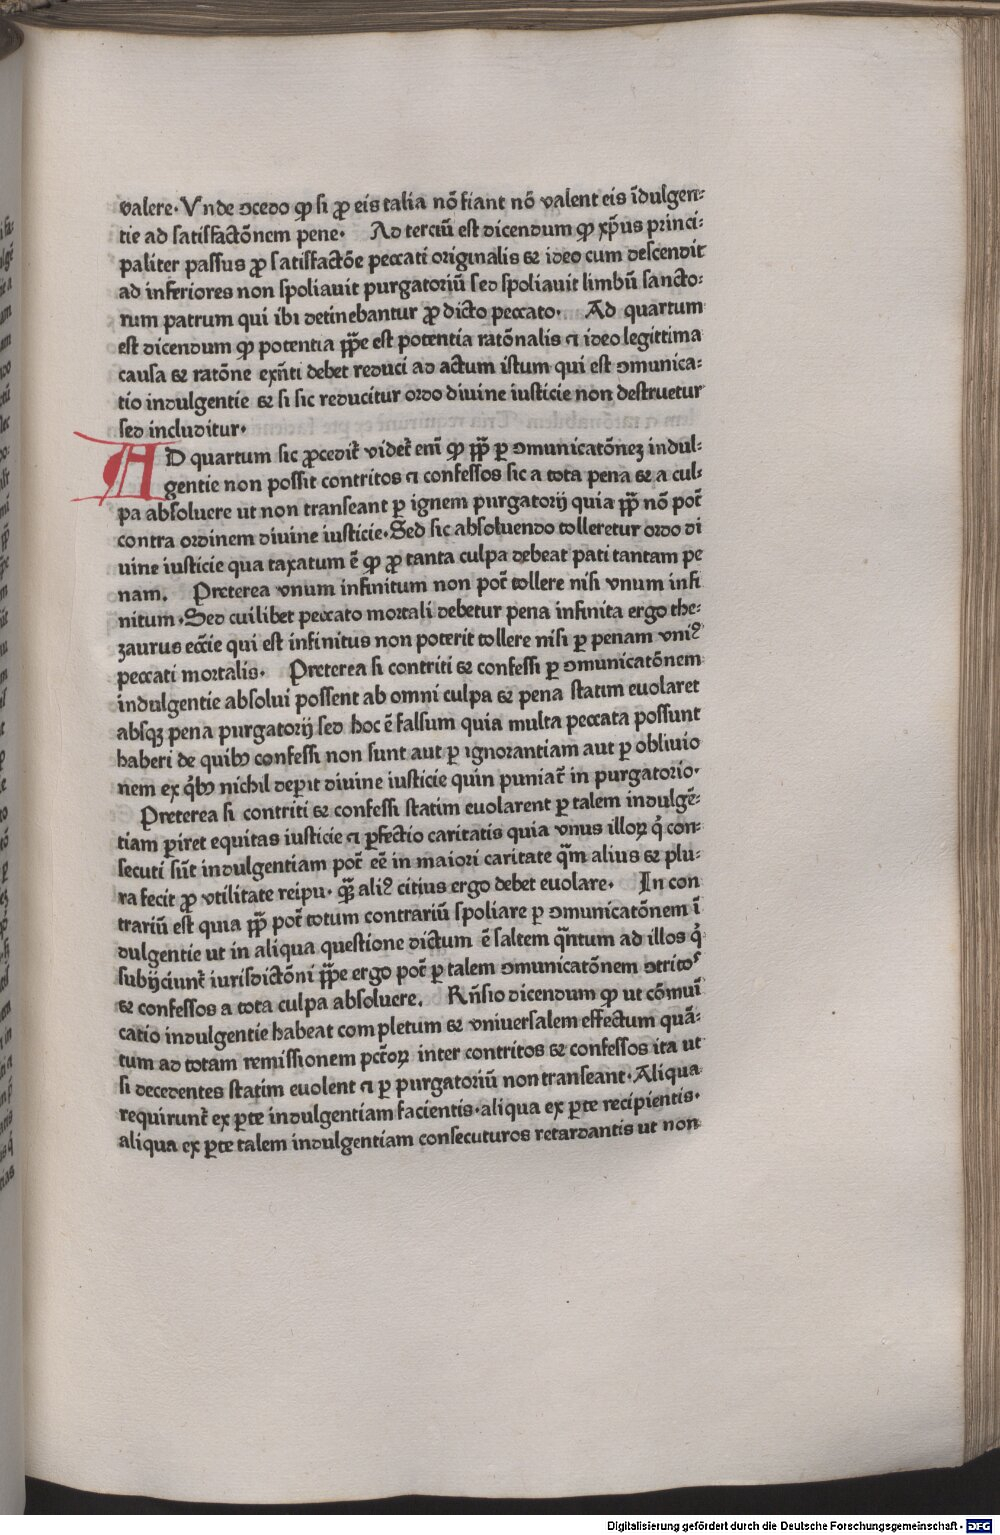 valere. Vnde ɔcedo ꝙ si ꝓ eis talia nō fiant nō valent eis īdulgen⸗
tie ad satisfactōnem pene. Ad terciū est dicendum ꝙ xp̄us princi⸗
paliter passus ꝓ satisfactōe peccati originalis ⁊ ideo cum descendit
ad inferiores non spoliauit purgatoriū sed spoliauit limbū sancto⸗
rum patrum qui ibi detinebantur ꝓ dicto peccato. Ad quartum
est dicendum ꝙ potentia pp̄e est potentia ratōnalis ⁊ ideo legittima
causa ⁊ ratōne exn̄ti debet reduci ad actum istum qui est ɔmunica⸗
tio indulgentie ⁊ si sic reducitur ordo diuine iusticie non destruetur
sed includitur.
AD quartum sic ꝓcedit̄ videt̄ eni̅ ꝙ pp̄ ꝑ ɔmunicatōnez indul⸗
gentie non possit contritos ⁊ confessos sic a tota pena ⁊ a cul⸗
pa absoluere ut non transeant ꝑ ignem purgatorij quia pp̄ nō pot̄
contra ordinem diuine iusticie. Sed sic absoluendo tolleretur ordo di
uine iusticie qua taxatum ē ꝙ ꝓ tanta culpa debeat pati tantam pe
nam. Preterea vnum infinitum non pot̄ tollere nisi vnum infi
nitum. Sed cuilibet peccato mortali debetur pena infinita ergo the⸗
zaurus ecc̄ie qui est infinitus non poterit tollere nisi ꝑ penam vniꝰ
peccati mortalis. Preterea si contriti ⁊ confessi ꝑ ɔmunicatōnem
indulgentie absolui possent ab omni culpa ⁊ pena statim euolaret
absqꝫ pena purgatorij sed hoc ē falsum quia multa peccata possunt
haberi de quibꝰ confessi non sunt aut ꝑ ignorantiam aut ꝑ obliuio
nem ex q̇bꝰ nichil deperit diuine iusticie quin puniat̄ in purgatorio.
Preterea si contriti ⁊ confessi statim euolarent ꝑ talem indulgē⸗
tiam ꝑiret equitas iusticie ⁊ ꝑfectio caritatis quia vnus illoꝝ q̇ con⸗
secuti sūt indulgentiam pot̄ eē in maiori caritate q̄m alius ⁊ plu⸗
ra fecit ꝓ vtilitate reipu. q̄ȝ aliꝰ citius ergo debet euolare. In con
trariū est quia pp̄ pot̄ totum contrariū spoliare ꝑ ɔmunicatōnem ī
dulgentie ut in aliqua questione dictum ē saltem qn̄tum ad illos q̇
subijciunt̄ iurisdictōni pp̄e ergo pot̄ ꝑ talem ɔmunicatōnem ɔtritos
⁊ confessos a tota culpa absoluere. Rn̄sio dicendum ꝙ ut cōmuī
catio indulgentie habeat completum ⁊ vniuersalem effectum quā⸗
tum ad totam remissionem pctōꝝ inter contritos ⁊ confessos ita ut
si decedentes statim euolent ⁊ ꝑ purgatoriū non transeant. Aliqua
requirunt̄ ex ꝑte indulgentiam facientis. aliqua ex ꝑte recipientis.
aliqua ex ꝑte talem indulgentiam consecuturos retardantis ut non
Digitalisierung gefördert durch die Deutsche Forschungsgemeinschaft - DFG